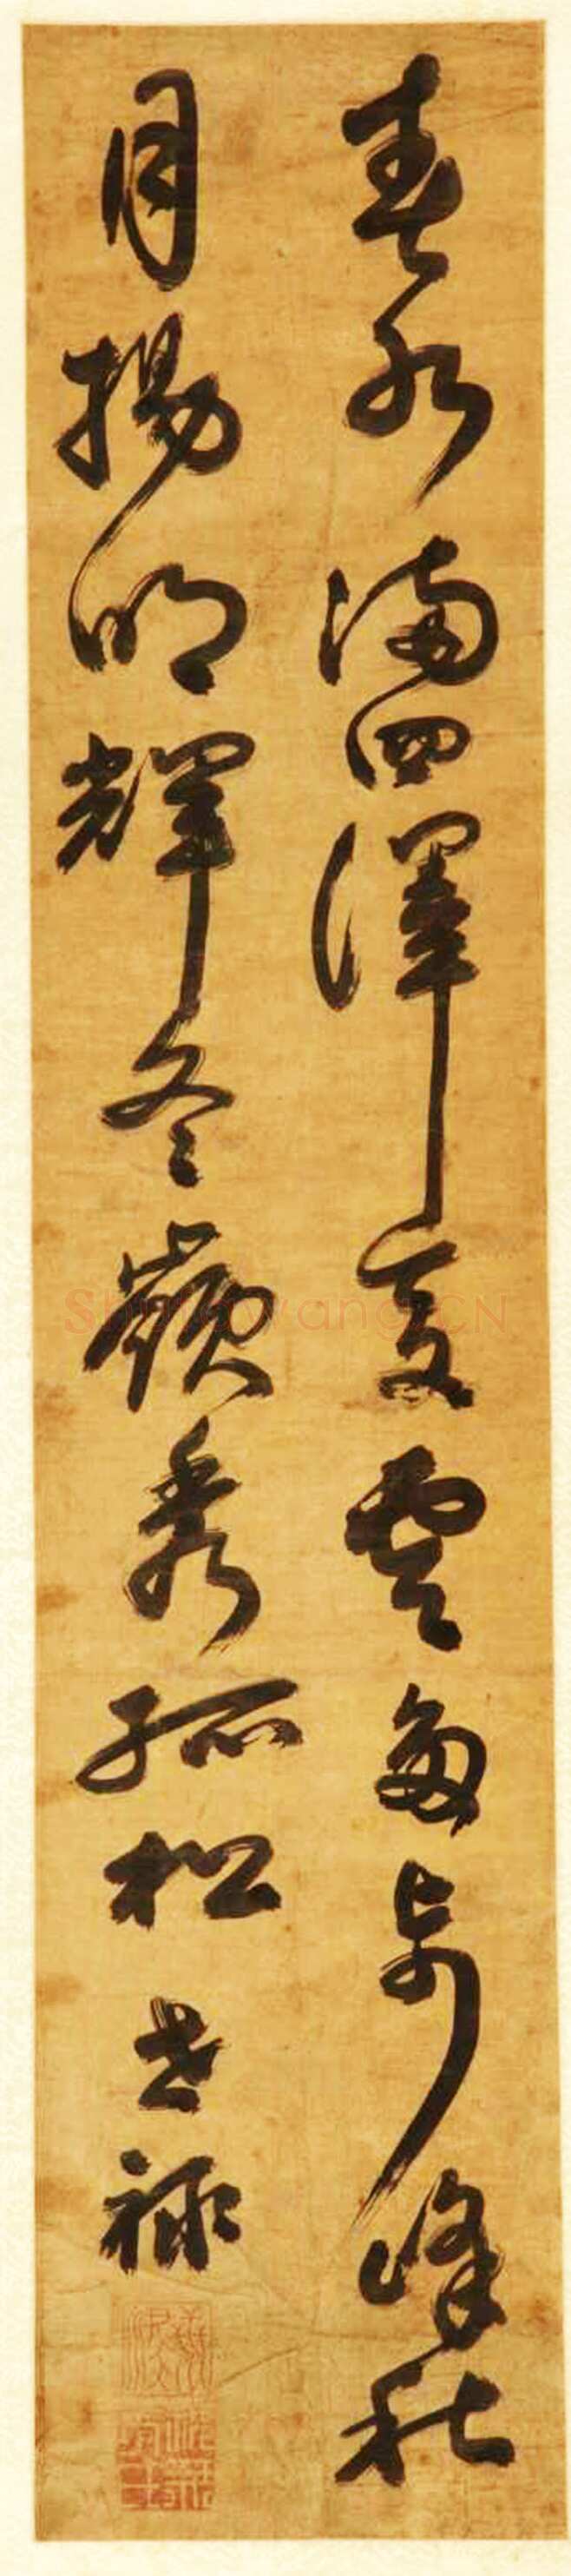 春水满四澤夏雲多奇峰秋
月揚明輝冬嶺秀孤松 世祿
Shufawang.CN